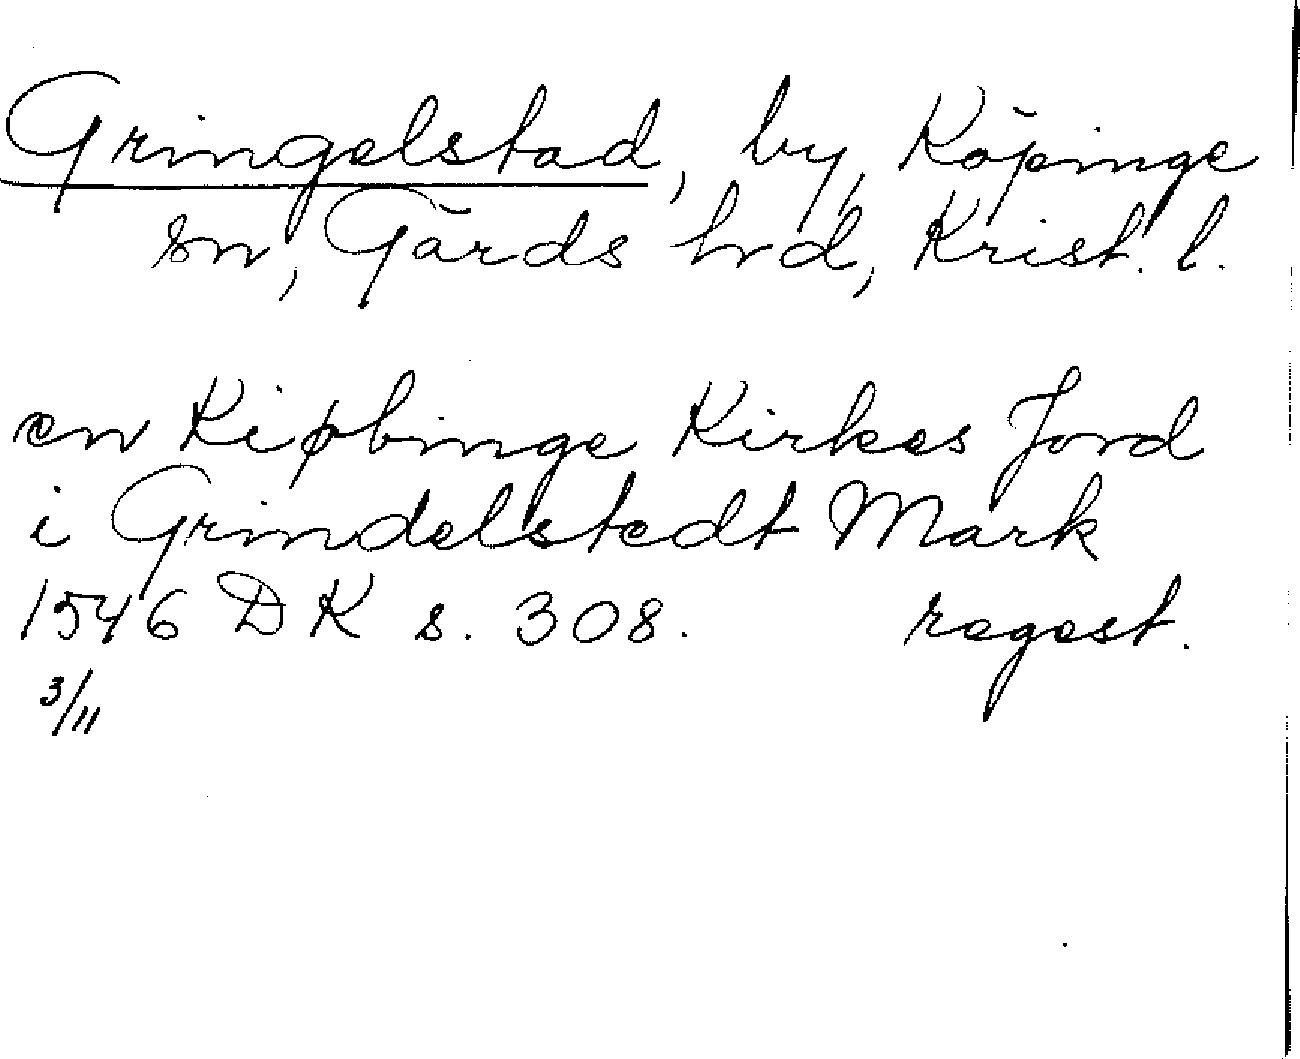 Gringelstad, by, Köpinge
sn, Gärds hrd, Krist. l.
en Kiøbinge Kirkes Jord
i Grindelstedt Mark
1546 DK s. 308. regest.
3/11